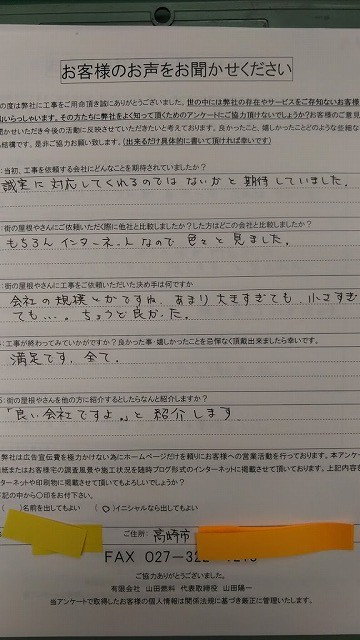 お客様のお声をお聞かせください
の度は弊社に工事をご用命頂き誠にありがとうございました。世の中には弊社の存在やサービスをご存知ないお客様
いらっしゃいます。その方たちに弊社をよく知って頂くためのアンケートにご協力頂けないでしょうか?お客様のご意見
聞かせいただき今後の活動に反映させていただきたいと考えております。良かったこと、嬉しかったことどのような些細な
結構です。是非ご協力お願い致します。(出来るだけ具体的に書いて頂ければ幸いです)
:当初、工事を依頼する会社にどんなことを期待されていましたか?
誠実に対応してくれるのではないかと期待していました。
街の屋根やさんにご依頼いただく際に他社と比較しましたか?した方はどこの会社と比較しましたか?
もちろんインターネットなので色々と見ました。
街の屋根やさんに工事をご依頼いただいた決め手は何ですか
会社の規模とかですね、あまり大きすぎても、小さすぎ
ても…。ちょうど良かった。
:工事が終わってみていかがですか?良かった事・嬉しかったことを忌憚なく頂戴出来ましたら幸いです。
満足です、全て。
:街の屋根やさんを他の方に紹介するとしたらなんと紹介しますか?
「良い会社ですよ。」と紹介します
弊社は広告宣伝費を極力かけない為にホームページだけを頼りにお客様への営業活動を行っております。本アンケ
用紙またはお客様宅の調査風景や施工状況を随時ブログ形式のインターネットに掲載させて頂いております。上記内容を
ターネットや印刷物に掲載させて頂いてもよろしいでしょうか?
下記の中から○印をお付け下さい。
( )名前を出してもよい (○)イニシャルなら出してもよい
ご住所: 高崎市
FAX 027-322
ご協力ありがとうございました。
有限会社 山田燃料 代表取締役 山田陽一
当アンケートで取得したお客様の個人情報は関係法規に基づき厳正に管理いたします。